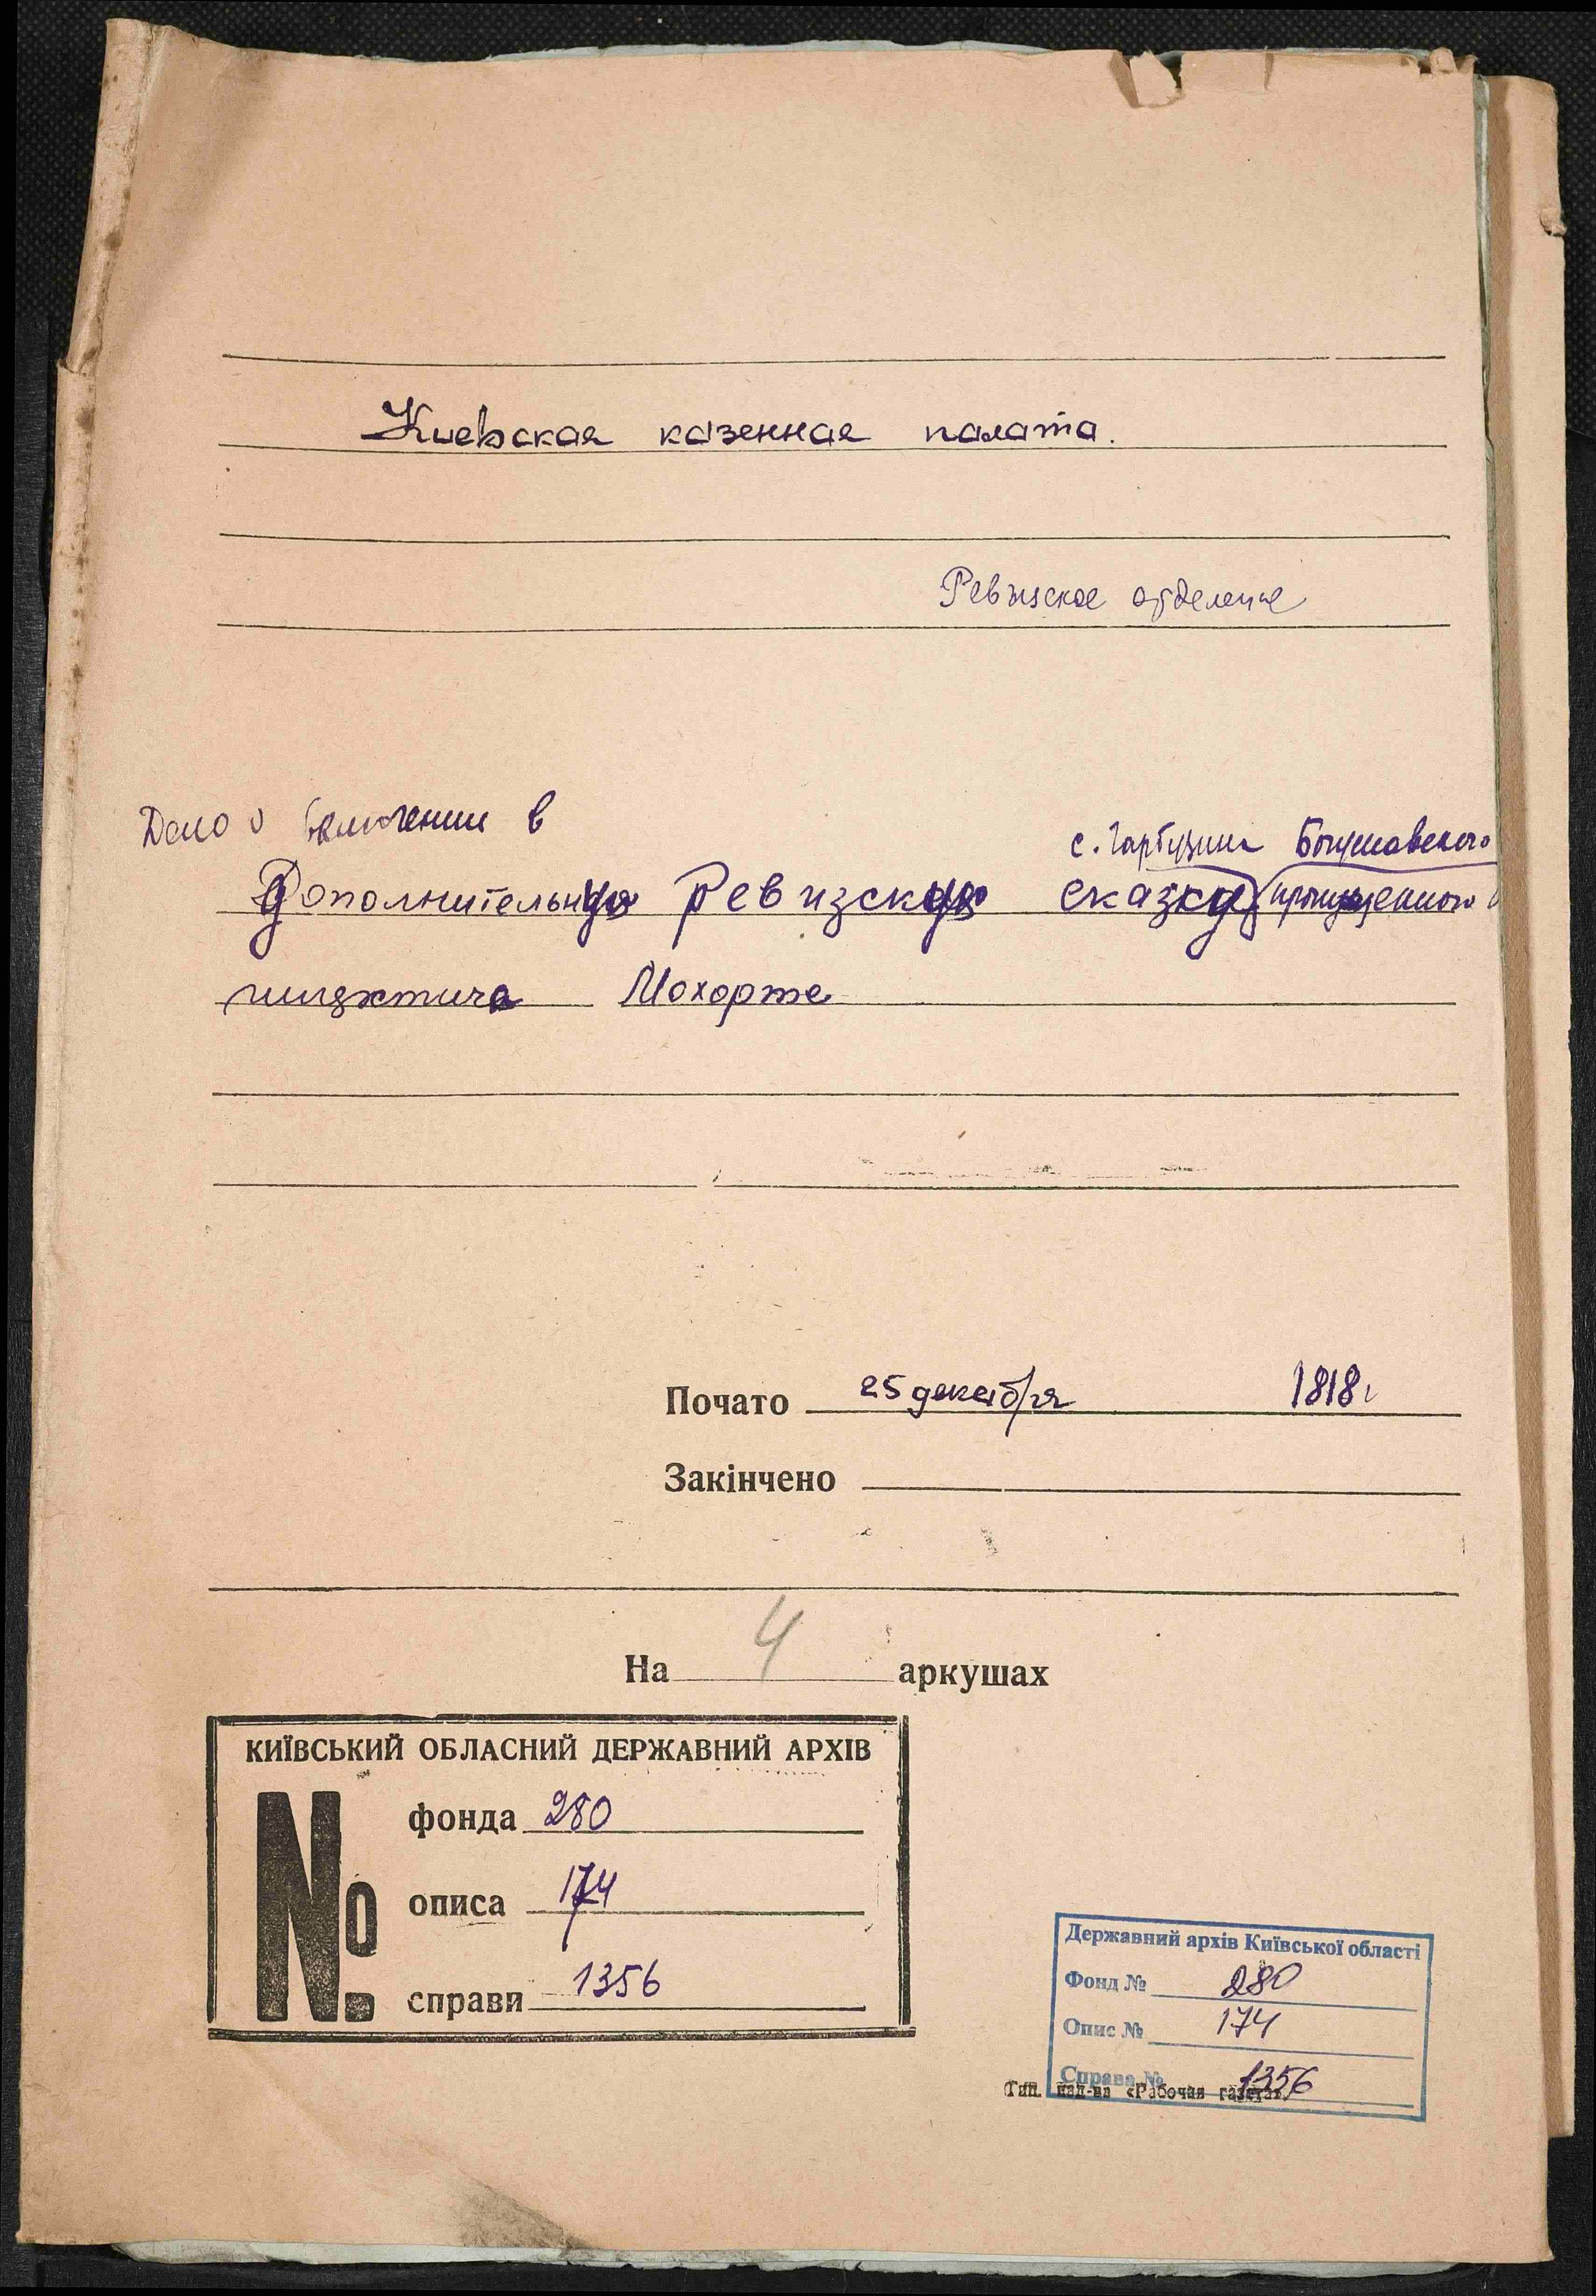 Киевская казенная палата.
Ревизское отделение
Дело о включении в
с. Гарбузина Богуславского
Дополнительную Ревизскую сказку пропущенного
шляхтича Мохорта
Почато 25 декабря 1818 г
Закінчено
На 4 аркушах
КИЇВСЬКИЙ ОБЛАСНИЙ ДЕРЖАВНИЙ АРХІВ
№
фонда 280
описа 174
справи 1356
Державний архів Київської області
Фонд № 280
Опис № 174
Справа № 1356
Тип. изд-ва «Рабочая газета»